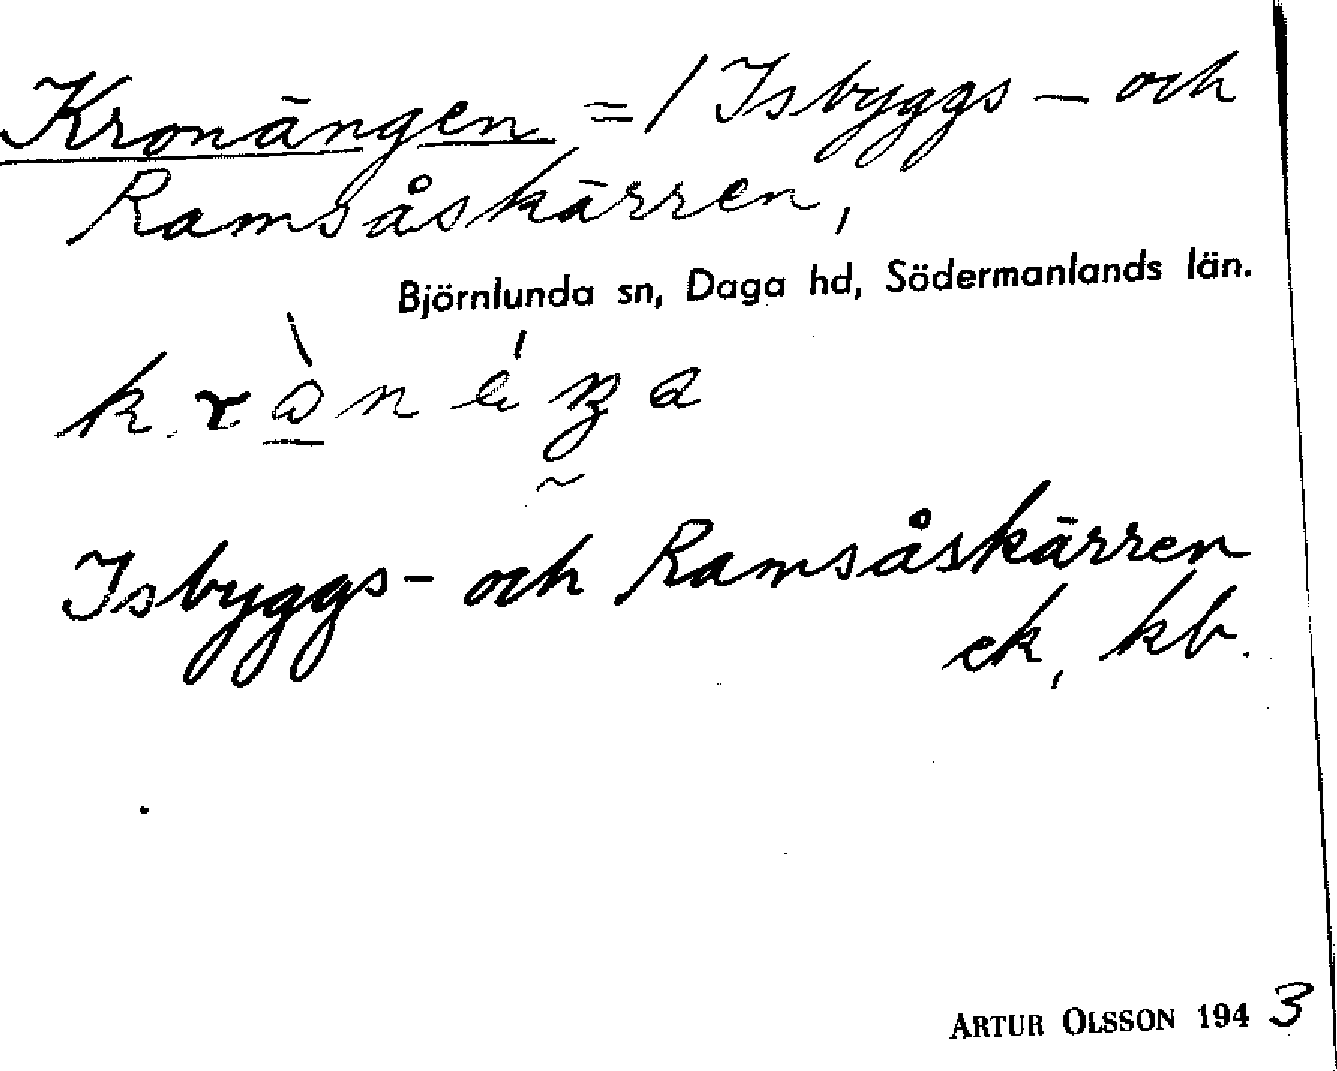 Kronängen = / Isbyggs - och
Ramsåskärren,
Björnlunda sn, Daga hd, Södermanlands län.
Isbyggs- och Ramsåskärren
ek, kb.
ARTUR OLSSON 1943